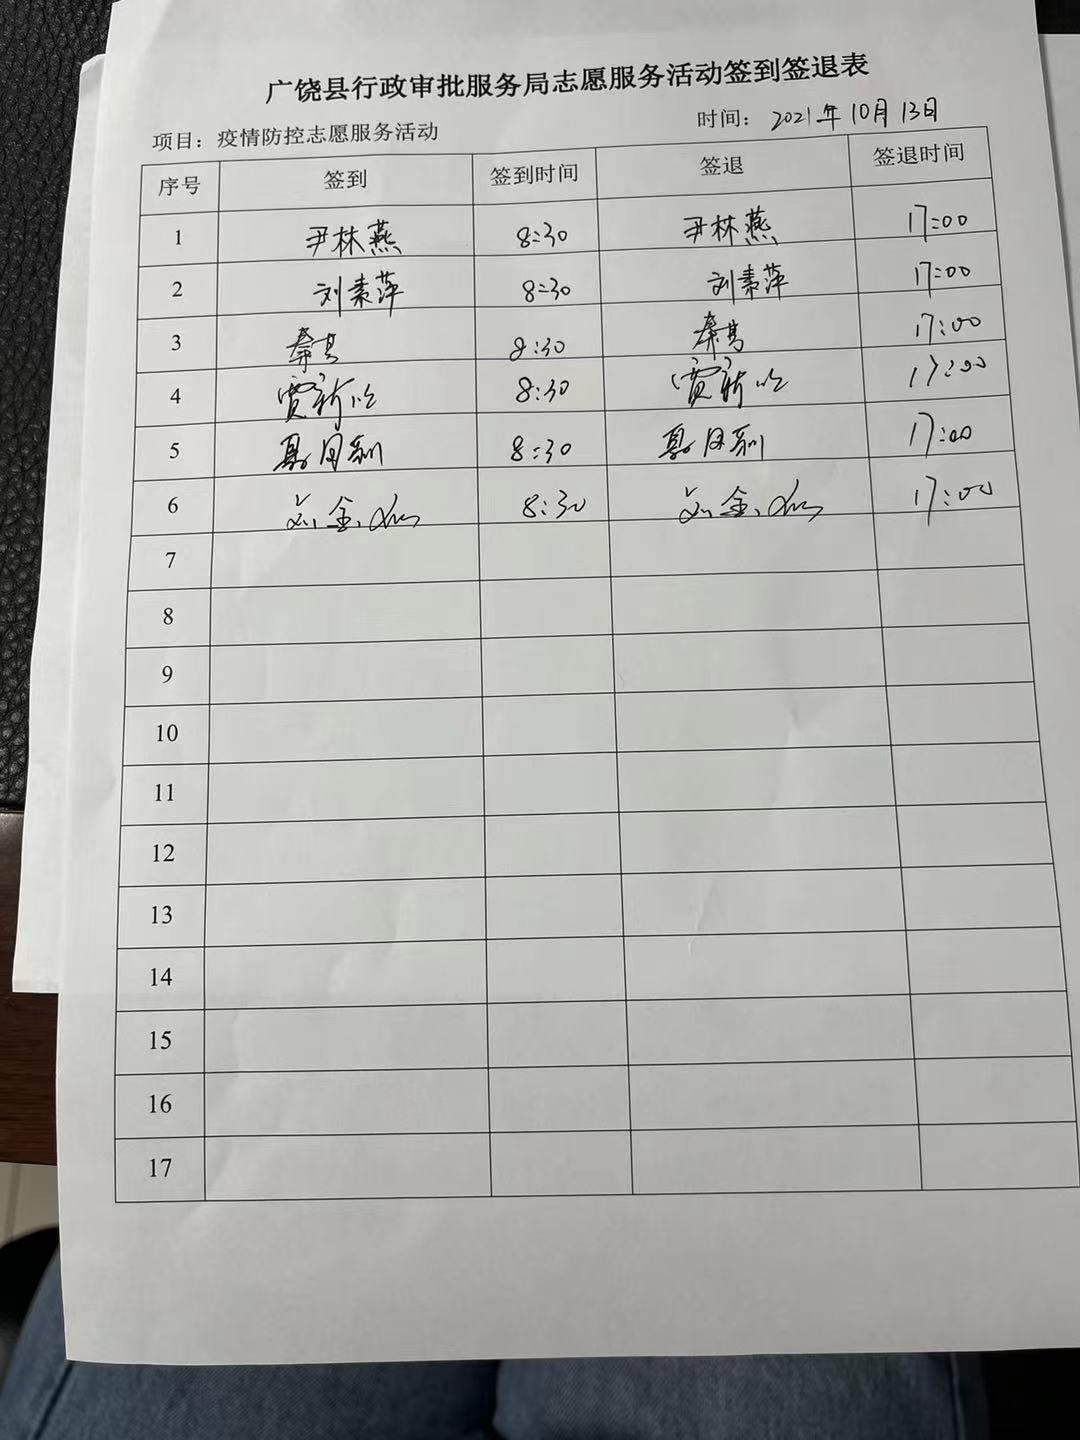 广饶县行政审批服务局志愿服务活动签到签退表
项目：疫情防控志愿服务活动 时间：2021年10月13日
序号 签到 签到时间 签退 签退时间
1 尹林燕 8:30 尹林燕 17:00
2 刘素萍 8:30 刘素萍 17:00
3 秦 8:30 秦 17:00
4 贾新 8:30 贾新 17:00
5 夏月 8:30 夏月 17:00
6 金 8:30 金 17:00
7
8
9
10
11
12
13
14
15
16
17